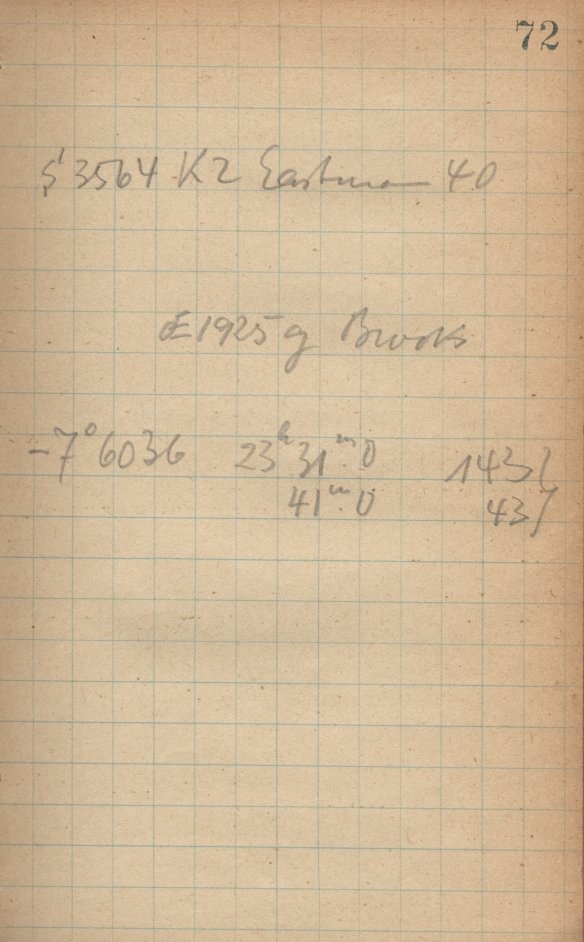 72
S 3564 K2 Eastman 40
Œ 1925 g Brooks
-7°6036 23ʰ 31ᵐ.0 143
41ᵐ.0 43